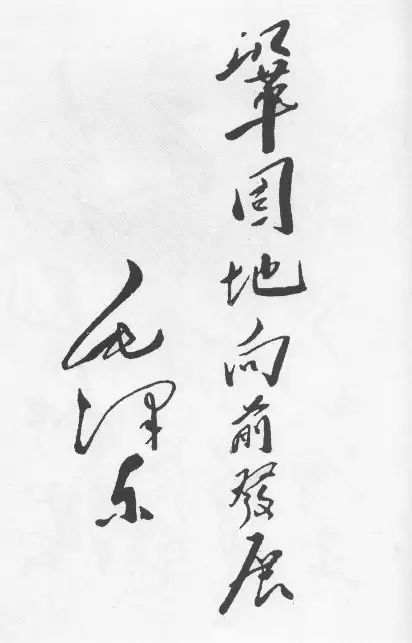 鞏固地向前發展
毛泽东